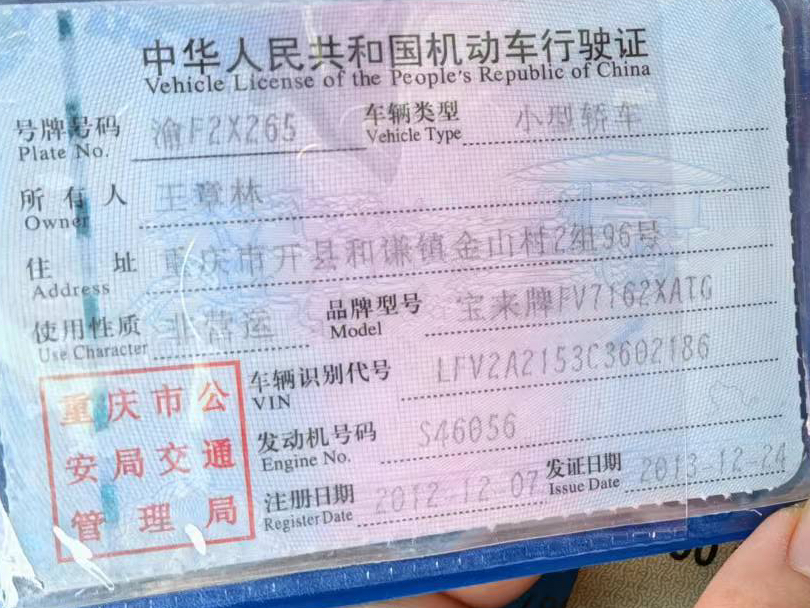 中华人民共和国机动车行驶证
Vehicle License of the People's Republic of China
号牌号码 渝F2X265 车辆类型 小型轿车
Plate No. Vehicle Type
所有人 王章林
Owner
住址 重庆市开县和谦镇金山村2组96号
Address
使用性质 非营运 品牌型号 宝来牌FV7162XATG
Use Character Model
车辆识别代号 LFV2A2153C3602186
VIN
发动机号码 S46056
Engine No.
注册日期 2012-12-07 发证日期 2013-12-24
Register Date Issue Date
重庆市公
安局交通
管理局